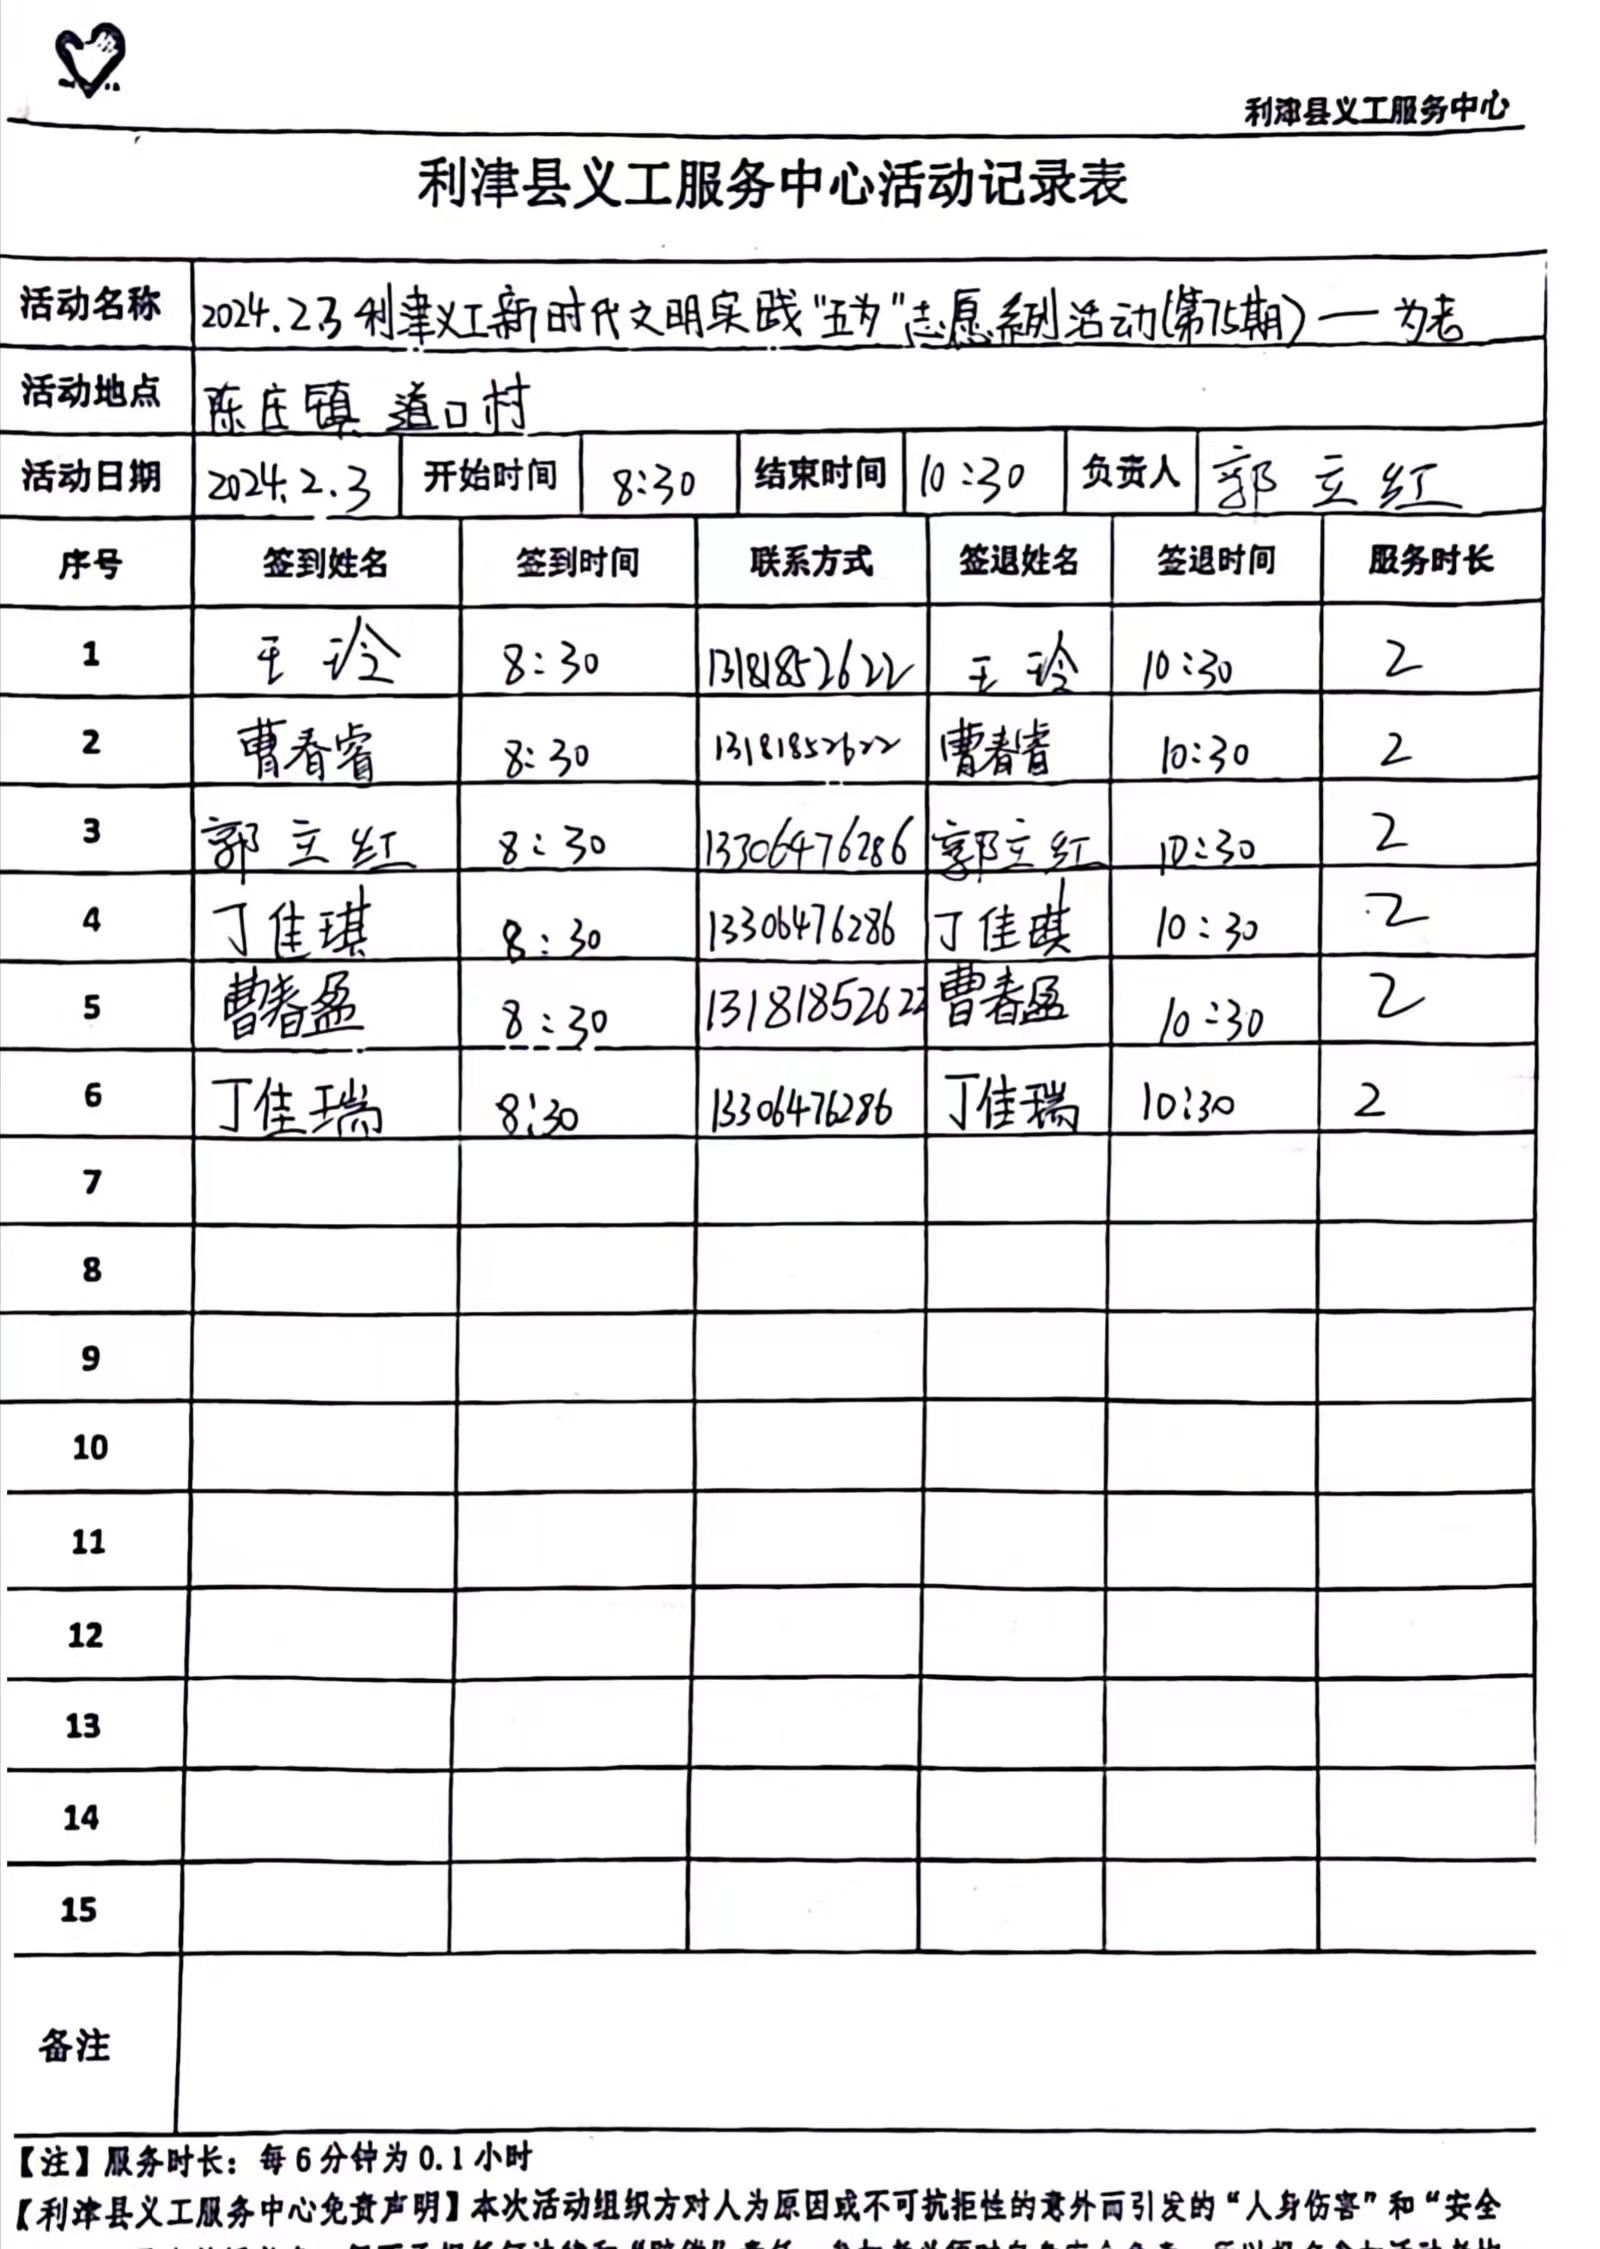 利津县义工服务中心
利津县义工服务中心活动记录表
活动名称 2024.2.3利津义工新时代文明实践“五为”志愿系列活动(第75期)—为老
活动地点 陈庄镇 道口村
活动日期 2024.2.3 开始时间 8:30 结束时间 10:30 负责人 郭立红
序号 签到姓名 签到时间 联系方式 签退姓名 签退时间 服务时长
1 王玲 8:30 13181852622 王玲 10:30 2
2 曹春睿 8:30 13181852622 曹春睿 10:30 2
3 郭立红 8:30 13306476286 郭立红 10:30 2
4 丁佳琪 8:30 13306476286 丁佳琪 10:30 2
5 曹春盈 8:30 13181852622 曹春盈 10:30 2
6 丁佳瑞 8:30 13306476286 丁佳瑞 10:30 2
7
8
9
10
11
12
13
14
15
备注
【注】服务时长：每6分钟为0.1小时
【利津县义工服务中心免责声明】本次活动组织方对人为原因或不可抗拒性的意外而引发的“人身伤害”和“安全